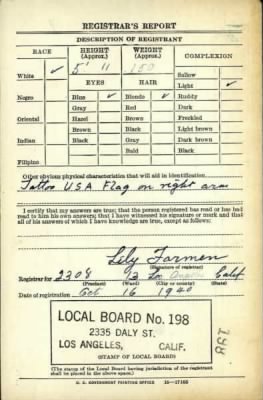 REGISTRAR'S REPORT
DESCRIPTION OF REGISTRANT
RACE HEIGHT (Approx.) WEIGHT (Approx.) COMPLEXION
5' 11 150
White ✓ Sallow
EYES HAIR Light ✓
Negro Blue ✓ Blonde ✓ Ruddy
Gray Red Dark
Oriental Hazel Brown Freckled
Brown Black Light brown
Indian Black Gray Dark brown
Bald Black
Filipino
Other obvious physical characteristics that will aid in identification
Tattoo U.S.A Flag on right arm
I certify that my answers are true; that the person registered has read or has had
read to him his own answers; that I have witnessed his signature or mark and that
all of his answers of which I have knowledge are true, except as follows:
Lely Farmen
(Signature of registrar)
Registrar for 2308 13 Los Angeles Calif
(Precinct) (Ward) (City or county) (State)
Date of registration Oct 16 1940
LOCAL BOARD No. 198
2335 DALY ST.
LOS ANGELES, CALIF.
(STAMP OF LOCAL BOARD)
198
(The stamp of the Local Board having jurisdiction of the registrant
shall be placed in the above space.)
U. S. GOVERNMENT PRINTING OFFICE 16—17105